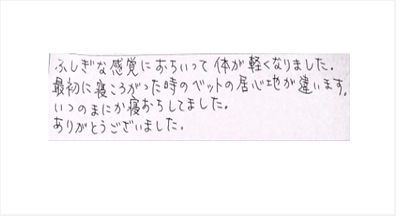 ふしぎな感覚におちいって体が軽くなりました。
最初に寝ころがった時のベットの居心地が違います。
いつのまにか寝おちしてました。
ありがとうございました。